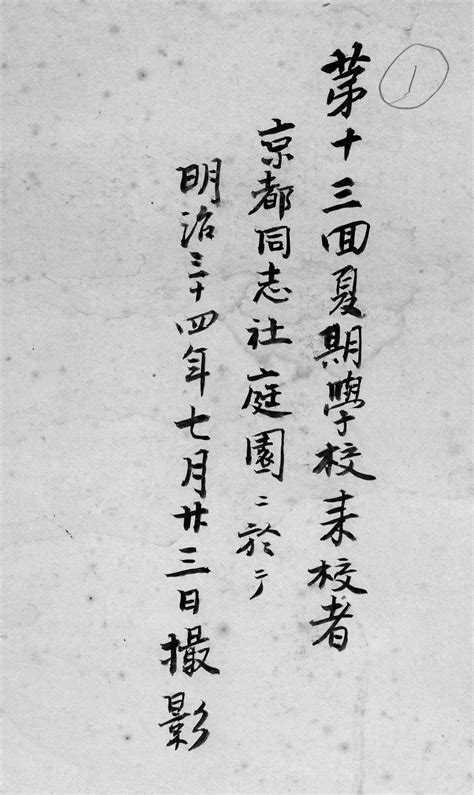 1
第十三回夏期學校来校者
京都同志社庭園ニ於テ
明治三十四年七月廿三日撮影